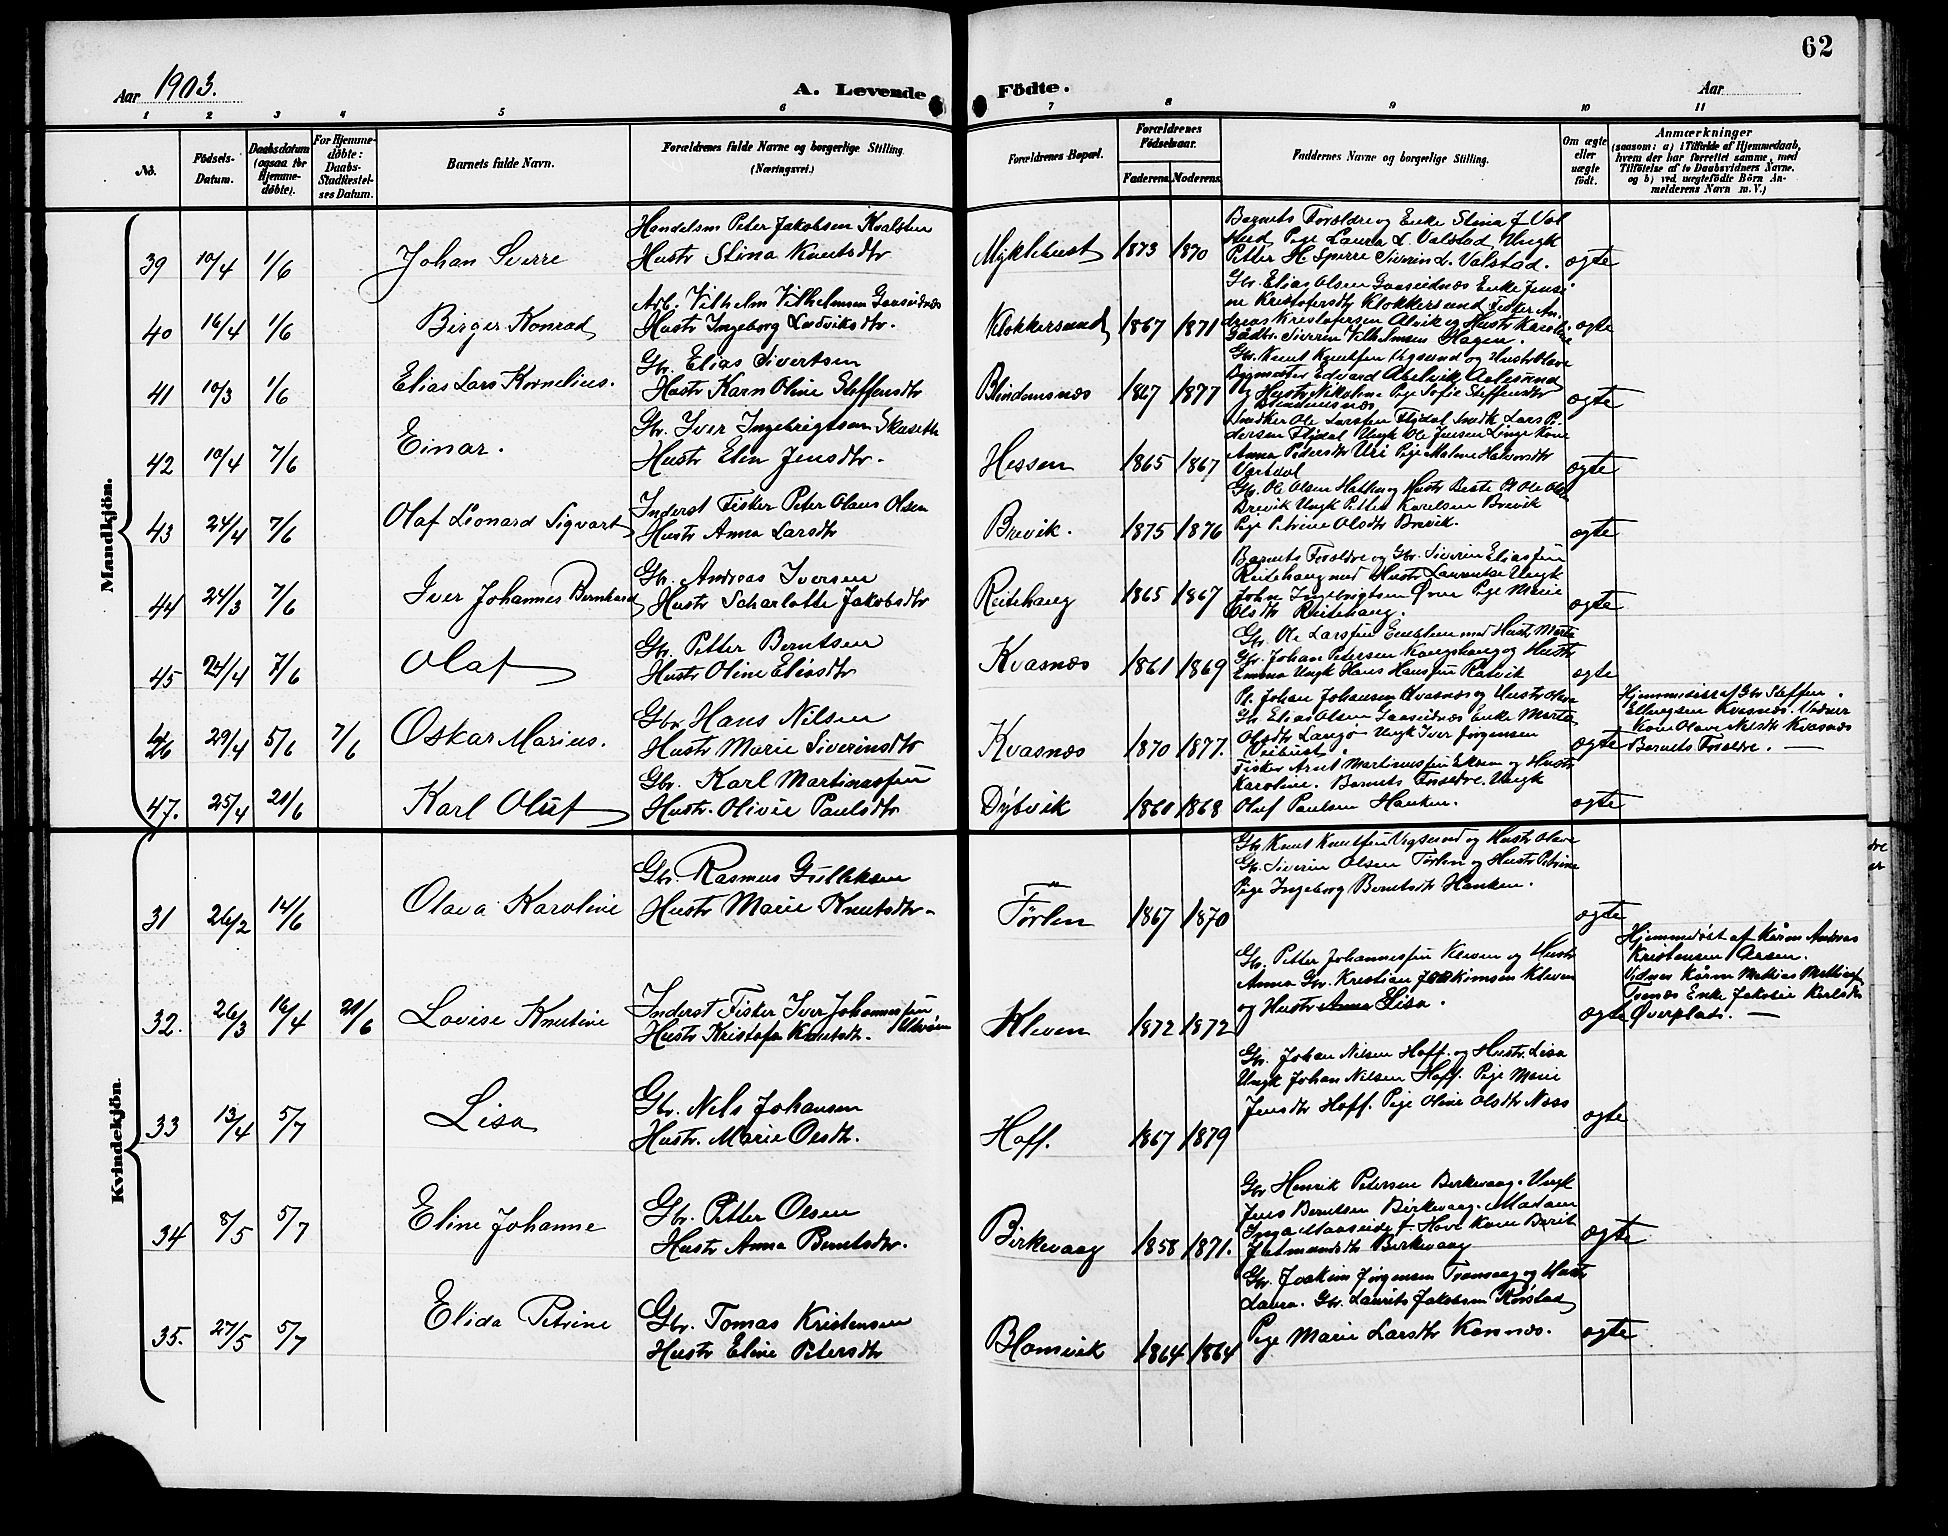 62
Aar 1903.
A. Levende Födte.
Aar
1 2 3 4 5 6 7 8 9 10 11
No.
Födsels-Datum.
Daabsdatum (ogsaa for Hjemme-döbte).
For Hjemme-döbte: Daabs-Stadfæstel-ses Datum.
Barnets fulde Navn.
Forældrenes fulde Navne og borgerlige Stilling.
(Næringsvei.)
Forældrenes Bopæl.
Forældrenes Födselsaar.
Faderens. Moderens.
Faddernes Navne og borgerlige Stilling.
Om ægte eller uægte födt.
Anmærkninger
(saasom: a) i Tilfælde af Hjemmedaab,
hvem der har forrettet samme, med
Tilföielse af to Daabsvidners Navne,
og b) ved uægtefödte Börn An-
melderens Navn m. V.)
Mandkjön.
39 10/4 1/6 Johan Sverre
Handelsm Peter Jakobsen Kvalsten
Hustr Stina Knutsdtr
Myklebust 1873 1870
Barnets Forældre og Enke Stina J. Val
stad, Pige Laura L. Valstad, Ungk
Petter H. Sperre Siverin L. Valstad.
ægte
40 16/4 1/6 Birger Konrad
Arb. Vilhelm Vilhelmsen Gaaseidnæs
Hustr Ingeborg Ludviksdtr.
Klokkersund 1867 1871
Gbr. Elias Olsen Gaaseidnæs Enke Jensi
ne Kristofersdtr Klokkersund Fisker An
dreas Kristofersen Alvik og Hustr Karoline
Gaabr. Siverin Vilhelmsen Hagen.
ægte
41 10/3 1/6 Elias Lars Kornelius.
Gbr. Elias Sivertsen
Hustr Karn Oline Steffensdtr
Blindemsnæs 1867 1877
Gbr. Knut Knutsen Vegsund og Hustr Olave
Bygmester Edvard Abelvik Aalesund
og Hustr Nikoline Pige Sofie Steffensdtr
Blindemsnæs
ægte
42 10/4 7/6 Einar.
Gbr. Iver Ingebrigtsen Skuseth
Hustr Elen Jensdtr.
Hessen 1865 1867
Snedker Ole Larssen Flydal Snedk Lars P.
dersen Flydal Ungk Ole Jensen Linge Kone
Anna Petersdtr Uri Pige Malene Halvorsdtr
Vartdal
ægte
43 24/4 7/6 Olaf Leonard Sigvart
Inderst Fisker Peter Olaus Olsen
Hustr Anna Larsdtr
Brevik. 1875 1876
Gbr. Ole Olsen og Hustr Berte Ole
Brevik Ungk Petter Karlsen Brevik
Pige Petrine Olsdtr Brevik.
ægte
44 24/3 7/6 Iver Johannes Bernhard
Gbr. Andreas Iversen
Hustr Scharlotte Jakobsdtr
Reitehaug 1865 1867
Barnets Forældre og Gbr. Siverin Eliassen
Reitehaug med Hustr Laurentse Ungk
John Ingebrigtsen Pige Marie
Olsdtr Reitehaug.
ægte
45 24/4 7/6 Olaf
Gbr. Petter Berntsen
Hustr Oline Eliasdtr
Kvasnæs 1861 1869
Gbr. Ole Larssen Emblem med Hustr Marte
Gbr. Johan Petersen og Hustr
Emma Ungk Hans Hanssen Ratvik
ægte
46 29/4 5/6 7/6 Oskar Marius.
Gbr. Hans Nilsen
Hustr Marie Siverinsdtr
Kvasnæs 1870 1877.
Johan Johansen Kvasnæs og Hustr
Gbr. Elias Olsen Gaaseidnæs Enke Marta
Olsdtr Langø Ungk Iver Jørgensen
Veibust.
ægte
Hjemmedøbt af Gbr Steffen
Ellingsen Kvasnæs. Vidner
Kone Olave Nilsdtr Kvasnæs
Barnets Forældre. —
47. 25/4 21/6 Karl Oluf
Gbr. Karl Martinussen
Hustr. Olivie Paulsdtr
Dybvik 1860 1868
Fisker Arnt Martinussen og Hustr
Karoline. Barnets Forældre. Ungk
Oluf Paulsen Hanken.
ægte
Kvindekjön.
31 26/2 14/6 Olava Karoline
Gbr. Rasmus Gulliksen
Hustr Marie Knutsdtr.
Tørlen 1867 1870
Gbr Knut Knutsen Vegsund og Hustr Olave
Gbr. Siverin Olsen Tørlen og Hustr Petrine
Pige Ingeborg Berntsdtr Hanken.
ægte
32. 26/3 16/4 21/6 Lovise Knutine
Inderst Fisker Iver Johannessen
Hustr Kristofa Knutsdtr.
Kleven 1872 1872
Gbr. Petter Johannessen Kleven og Hustr
Anna Gbr. Kristian Joakimsen Kleven
og Hustr Anna Elisa.
ægte
Hjemmedøbt af Andreas
Kristensen
Vidner Mathias
Enke Jakobie Karlsdtr
Øverplads. —
33 13/4 5/7 Lisa
Gbr. Nels Johansen
Hustr. Marie Olsdtr.
Hoff. 1867 1879
Gbr. Johan Nilsen Hoff. og Hustr. Lisa
Ungk Johan Nilsen Hoff. Pige Marie
Jensdtr Hoff. Pige Oline Olsdtr Næss
ægte
34 8/5 5/7 Eline Johanne
Gbr. Petter Olsen
Hustr Anna Berntsdtr.
Birkevaag 1858 1871.
Gbr Henrik Petersen Birkevaag. Ungk
Jens Berntsen Birkevaag. Madam
Inga Maaseide f. Hove Kone Berit
Birkevaag
ægte
35. 27/5 5/7 Elida Petrine
Gbr. Tomas Kristensen
Hustr Eline Petersdtr
Blomvik 1864 1864
Gbr. Joakim Jørgensen Tranvaag og Hustr
Laura. Gbr. Laurits Jakobsen Rørstad
Pige Marie Larsdtr Kannæs.
ægte